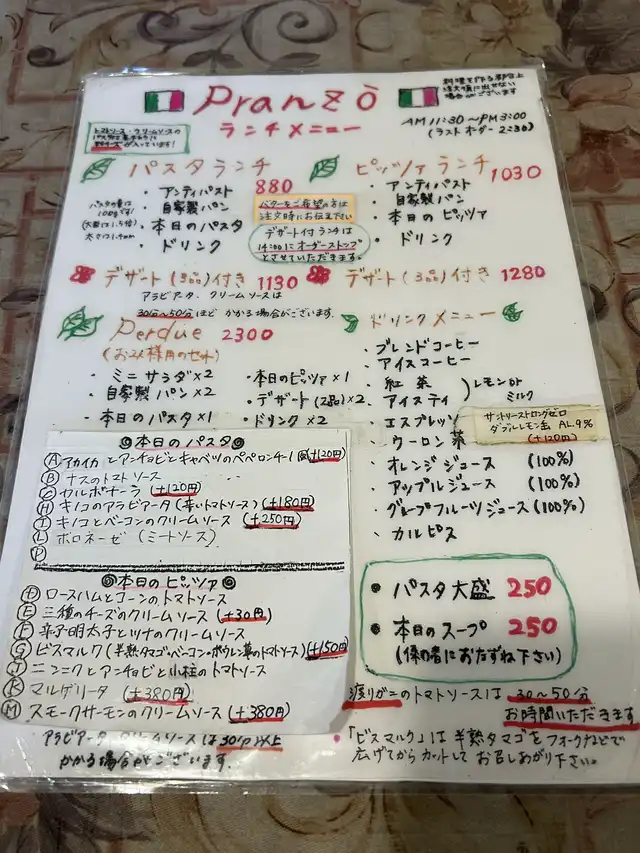 Pranzò
ランチメニュー
料理を作る都合上
注文順に出せない
場合がございます
AM 11:30〜PM 3:00
(ラストオーダー 2:30)
トマトソース・クリームソースの
入っています!
パスタランチ 880
・アンティパスト
・自家製パン
・本日のパスタ
・ドリンク
パスタの量は
100gです!
(大盛は1.5倍)
太さは1.4mm
バターをご希望の方は
注文時にお伝え下さい
デザート付ランチは
14:00にオーダーストップ
とさせていただきます。
ピッツァランチ 1030
・アンティパスト
自家製パン
・本日のピッツァ
・ドリンク
デザート(3品)付き 1130
デザート(3品)付き 1280
アラビアータ、クリームソースは
30分〜50分ほどかかる場合がございます。
Perdue 2300
(お2人様用のセット)
・ミニサラダ×2
・自家製パン×2
・本日のパスタ×1
・本日のピッツァ×1
・デザート(2品)×2
・ドリンク×2
ドリンクメニュー
・ブレンドコーヒー
・アイスコーヒー
・紅茶
・アイスティ
レモンor
ミルク
・エスプレッソ
・ウーロン茶
サントリーストロングゼロ
ダブルレモン缶 AL.9%
(+120円)
・オレンジジュース (100%)
・アップルジュース (100%)
・グループフルーツジュース (100%)
・カルピス
◎本日のパスタ◎
Ⓐアカイカとアンチョビとキャベツのペペロンチーノ(+120円)
Ⓑナスのトマトソース
Ⓒカルボナーラ(+120円)
Ⓗキノコのアラビアータ(辛いトマトソース)(+180円)
Ⓘキノコとベーコンのクリームソース(+250円)
Ⓛボロネーゼ(ミートソース)
Ⓟ
◎本日のピッツァ◎
ロースハムとコーンのトマトソース
Ⓔ三種のチーズのクリームソース(+30円)
Ⓕ辛子明太子とツナのクリームソース
Ⓖビスマルク(半熟タマゴ・ベーコン・ホウレン草のトマトソース)(+150円)
Ⓙニンニクとアンチョビと小柱のトマトソース
Ⓚマルゲリータ(+380円)
Ⓜスモークサーモンのクリームソース(+380円)
アラビアータ クリームソースは30分以上
かかる場合がございます。
• パスタ大盛 250
• 本日のスープ 250
(係の者におたずね下さい)
渡りガニのトマトソースは 30〜50分
お時間いただきます
•「ビスマルク」は半熟タマゴをフォークなどで
広げてからカットしてお召しあがり下さい。